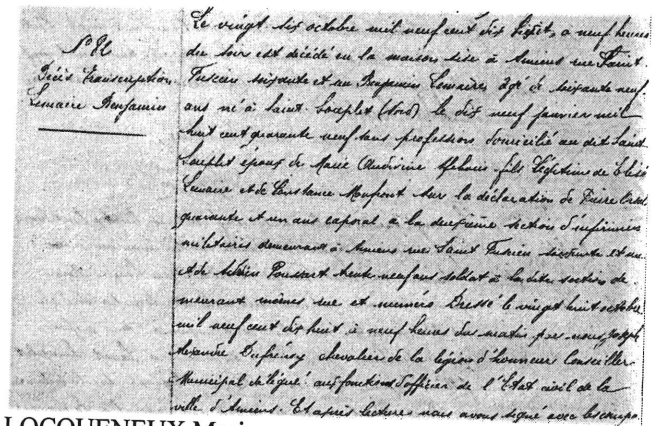 N° 82
Décès Transcription
Lemaire Benjamin
Le vingt six octobre mil neuf cent dix huit, à neuf heures
du soir est décédé en la maison sise à Amiens rue Saint
Fuscien soixante et un Benjamin Lemaire, âgé de soixante neuf
ans né à Saint Souplet (Nord) le dix neuf janvier mil
huit cent quarante neuf sans profession domicilié au dit Saint
Souplet époux de Marie fils légitime de
Lemaire et de Constance sur la déclaration de Pierre
quarante et un ans caporal à la deuxième section d'infirmiers
militaires demeurant à Amiens rue Saint Fuscien soixante et un
et de Poussart trente neuf ans soldat à la dite section de
meurant mêmes rue et numéro Dressé le vingt huit octobre
mil neuf cent dix huit à neuf heures du matin par nous Joseph
Alexandre Dufrénoy chevalier de la légion d'honneur Conseiller
Municipal délégué aux fonctions d'officier de l'Etat civil de la
ville d'Amiens. Et après lecture nous avons signé avec les comp
LOCQUENEUX